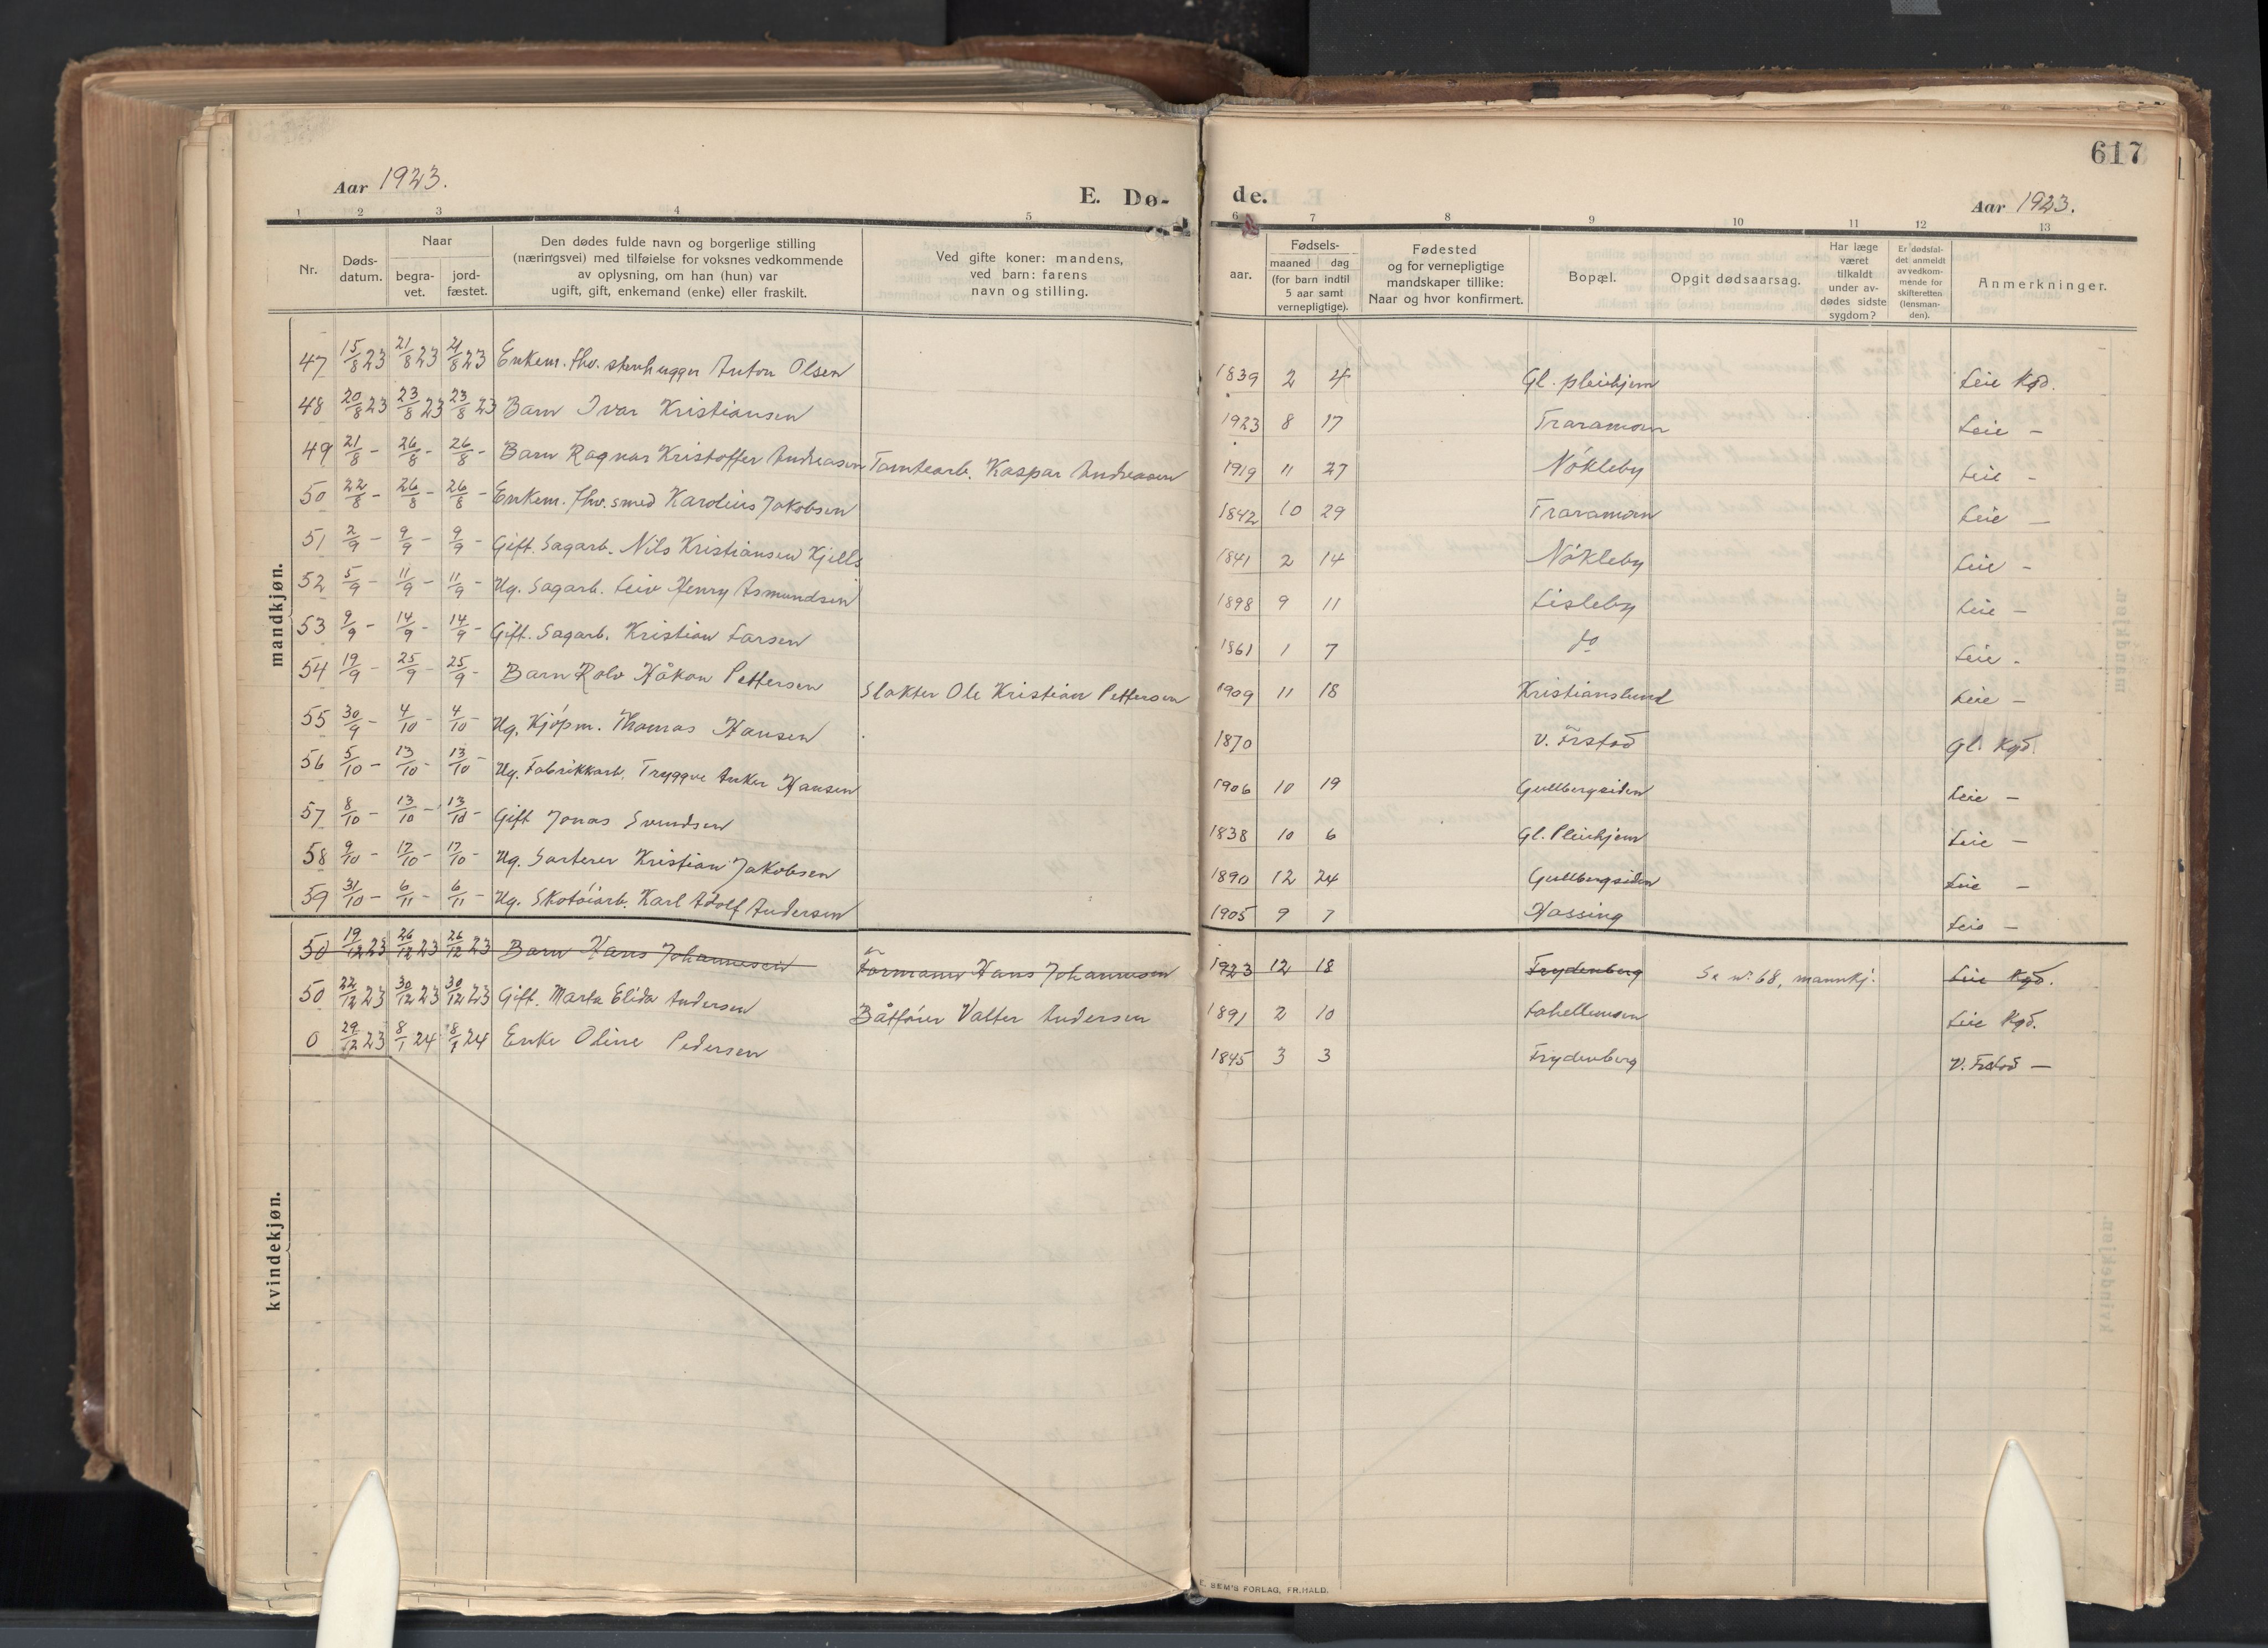 617
Aar 1923.
E. Dø-
de.
Aar 1923.
1 2 3 4 5 6 7 8 9 10 11 12 13
Nr.
Døds-
datum.
Naar
begra-
vet.
jord-
fæstet.
Den dødes fulde navn og borgerlige stilling
(næringsvei) med tilføielse for voksnes vedkommende
av oplysning, om han (hun) var
ugift, gift, enkemand (enke) eller fraskilt.
Ved gifte koner: mandens,
ved barn: farens
navn og stilling.
Fødsels-
aar.
maaned dag
(for barn indtil
5 aar samt
vernepligtige).
Fødested
og for vernepligtige
mandskaper tillike:
Naar og hvor konfirmert.
Bopæl.
Opgit dødsaarsag.
Har læge
været
tilkaldt
under av-
dødes sidste
sygdom?
Er dødsfal-
det anmeldt
av vedkom-
mende for
skifteretten
(lensman-
den).
Anmerkninger.
mandkjøn.
47 15/8 23 21/8 23 21/8 23 Enkem. fhv. stenhugger Anton Olsen 1839 2 4 Gl. pleiehjem Leie Kgd.
48 20/8 23 23/8 23 23/8 23 Barn Ivar Kristiansen 1923 8 17 Traramoen Leie —
49 21/8 - 26/8 - 26/8 - Barn Ragnar Kristoffer Andreasen Tomtearb. Kaspar Andreasen 1919 11 27 Nökleby Leie -
50 22/8 - 26/8 - 26/8 - Enkem. fhv. smed Karolius Jakobsen 1842 10 29 Traramoen Leie —
51 2/9 - 9/9 - 9/9 - Gift. Sagarb. Nils Kristiansen Kjells 1841 2 14 Nökleby Leie -
52 5/9 - 11/9 - 11/9 - Ug. Sagarb. Leiv Henry Asmundsen 1898 9 11 Lisleby Leie —
53 9/9 - 14/9 - 14/9 - Gift. Sagarb. Kristian Larsen 1861 1 7 do Leie -
54 19/9 - 25/9 - 25/9 - Barn Rolv Håkon Pettersen Slakter Ole Kristian Pettersen 1909 11 18 Kristianslund Leie —
55 30/9 - 4/10 - 4/10 - Ug. Kjöpm. Thomas Hansen 1870 V. Frstad Gl. Kgd.
56 5/10 - 13/10 - 13/10 - Ug. Fabrikkarb. Tryggve Anker Hansen 1906 10 19 Gullbergsiden Leie —
57 8/10 - 13/10 - 13/10 - Gift Jonas Svendsen 1838 10 6 Gl. Pleiehjem Leie —
58 9/10 - 17/10 - 17/10 - Ug. Sorterer Kristian Jakobsen 1890 12 24 Gullbergsiden Leie —
59 31/10 - 6/11 - 6/11 - Ug. Skotöiarb. Karl Adolf Andersen 1905 9 7 Hassing Leie —
kvindekjøn.
50 19/12 23 26/12 23 26/12 23 Barn Hans Johannesen Formann Hans Johannesen 1923 12 18 Frydenberg Se nr. 68, mannkj. Leie Kgd.
50 22/12 23 30/12 23 30/12 23 Gift. Marta Elida Andersen Båtförer Valter Andersen 1891 2 10 Lahellemoen Leie Kgd.
0 29/12 23 8/1 24 8/1 24 Enke Oline Pedersen 1845 3 3 Frydenberg V. Frstad —
E. SEM'S FORLAG, FR.HALD.